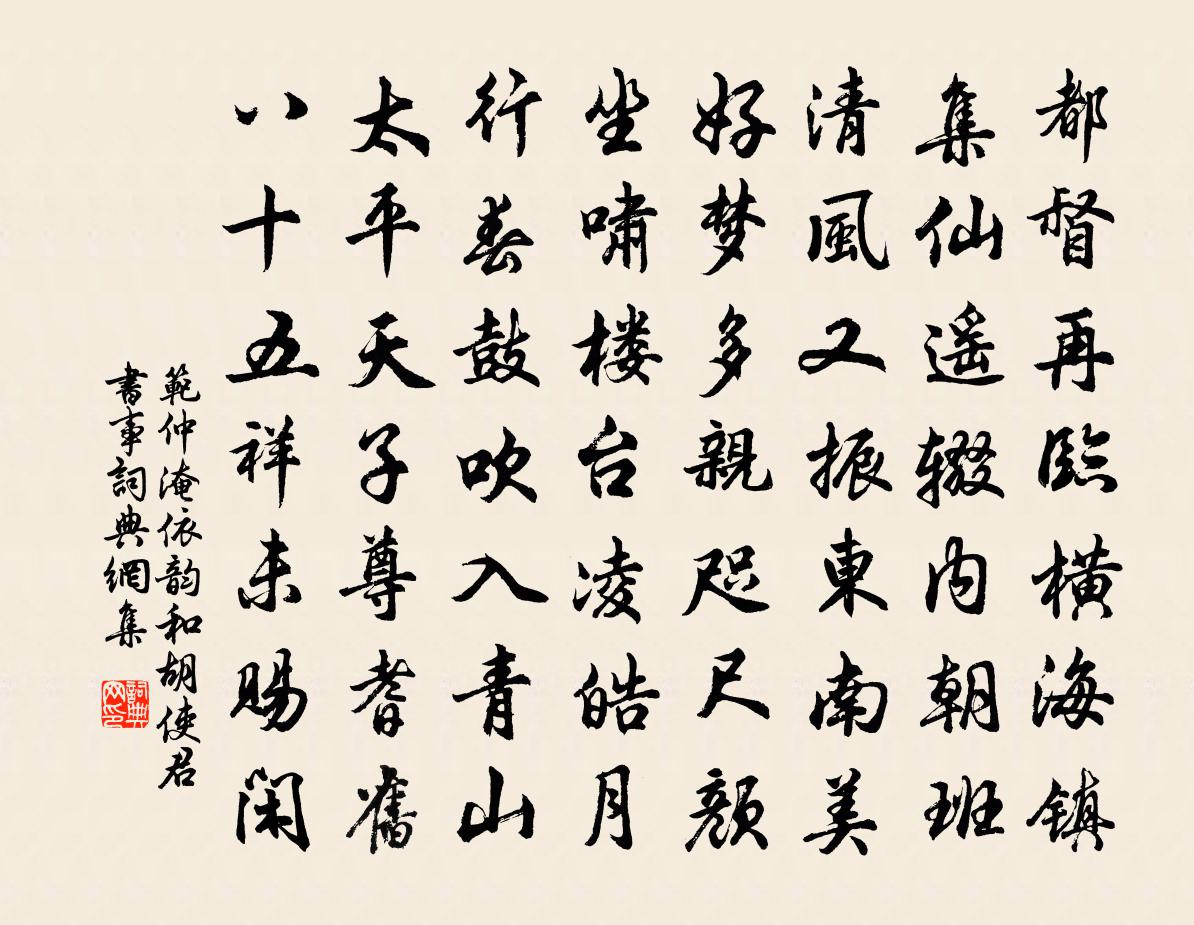 都督再臨橫海镇
集仙遥辍内朝班
清風又振東南美
好梦多親咫尺颜
坐嘯楼台凌皓月
行春鼓吹入青山
太平天子尊耆舊
八十五祥未赐闲
範仲淹依韵和胡使君
書事詞典網集
詞典网印